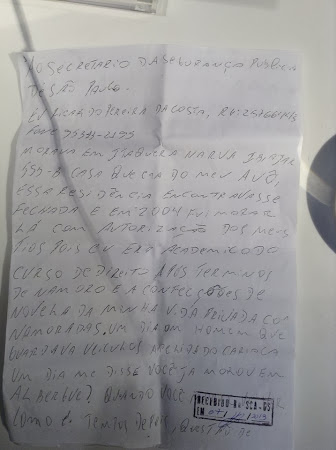 AO SECRETARIO DA SEGURANÇA PUBLICA
DE SÃO PAULO.
EU RICARDO PEREIRA DA COSTA, RG:
FONE
MORAVA EM ITAQUERA NA RUA
A CASA QUE ERA DO MEU AVÔ,
ESSA RESIDÊNCIA ENCONTRAVASSE
FECHADA E EM 2004 FUI MORAR
LÁ COM AUTORIZAÇÃO DOS MEUS
TIOS POIS EU ERA ACADEMICO DO
CURSO DE DIREITO APOS TERMINOS
DE NAMORO E A CONFECÇÕES DE
NOVELA DA MINHA VIDA PRIVADA COM
NAMORADAS. UM DIA UM HOMEM QUE
GUARDAVA VEICULOS APELIDO CARIOCA
UM DIA ME DISSE VOCÊ JA MOROU EM
ALBERGUE? QUANDO VOCÊ
COMO É. TEMPOS DEPOIS, QUESTÃO DE
RECEBIDO NA
EM